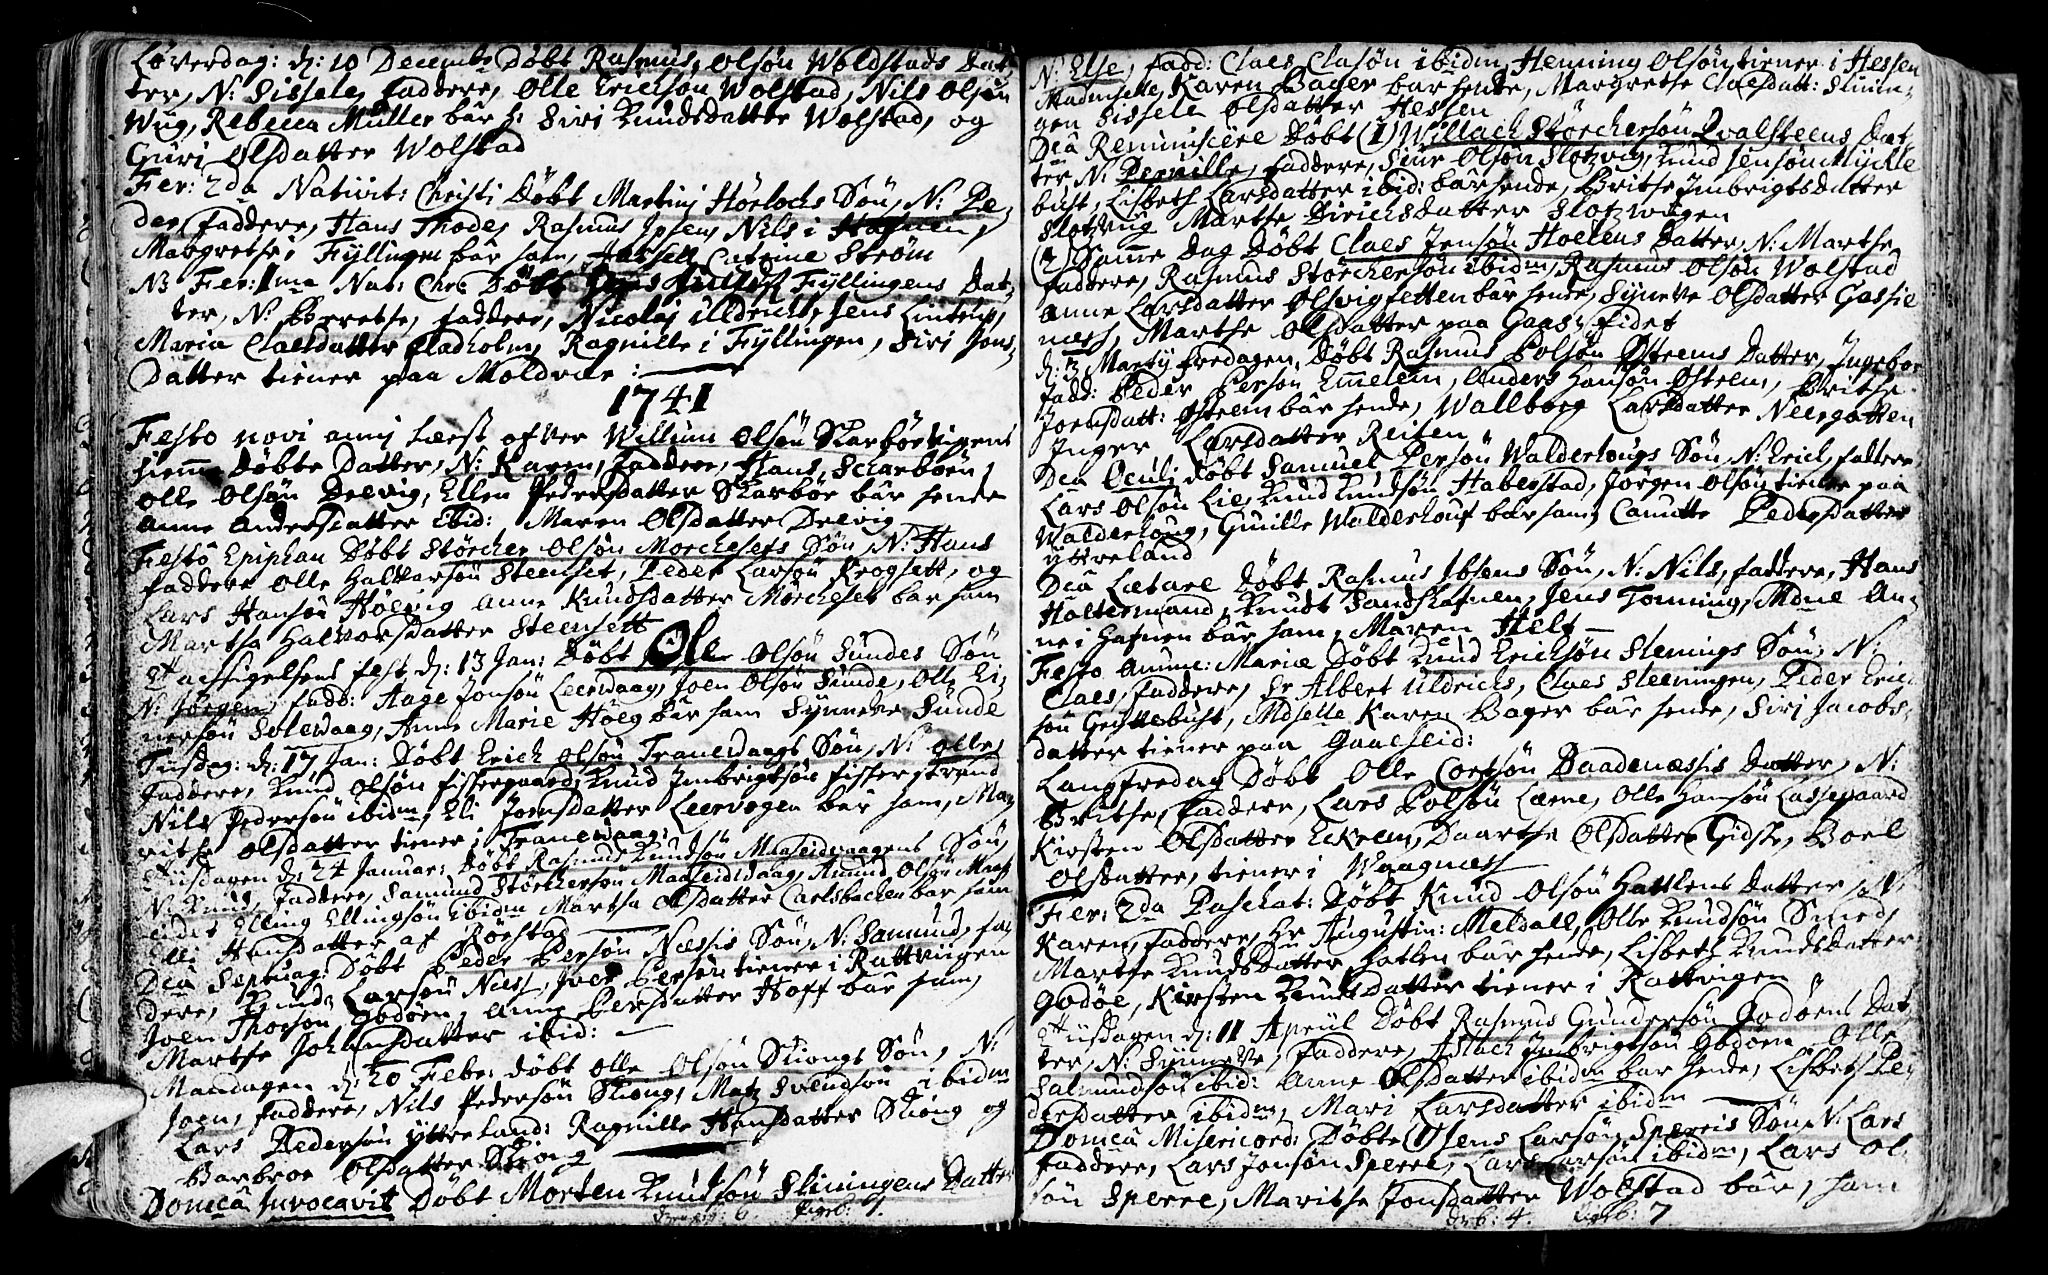 Løverdag: d: 10 Decembr Døbt Rasmus Olsøn Woldstads Dat
ter, N: Sissele, faddere, Olle Ericksøn Wolstad, Nils Olsøn
Wiig, Rebecca Müller bar h: Siri Knudsdatter Wolstad, og
Guri Olsdatter Wolstad
Fer: 2da Nativit: Christi Døbt Martinj Hørlochs Søn, N: Pe,
der, faddere, Hans Thode, Rasmus Ipsen, Nils i Hafnen,
Margrethe i Fyllingen bar ham, Catrine Strøm
NB Fer: 1ma Nat: Chr: Døbt Fyllingens Dat,
ter, N: Berrethe, faddere, Nicolaj Uldrichs, Jens Lintrup,
Maria Claesdatter Fladholm, Ragnille i Fyllingen, Siri Jons,
Datter tiener paa Moldvær :
1741
Festo novi annj læst ofver Willum Olsøn Skarbøevigens
hiemme døbte Datter, N: Karen, faddere, Hans Scharbøen,
Olle Olsøn Deevig, Ellen Pedersdatter Skarbøe bar hende
Anne Andersdatter ibid: Maren Olsdatter Deevig
Festo Epiphan Døbt Størcher Olsøn Morchesets Søn, N: Hans
faddere Olle Halvarsøn Steenset, Peder Larsøn Krogsett, og
Lars Hansøn Høevig Anne Knudsdatter Morcheset bar ham
Marthe Halvorsdatter Steensett
Tachsigelsens fest d: 13 Jan: Døbt Ole Olsøn Sundes Søn
N: Jørgen, fadd: Aage Jonsøn Leervaag, Joen Olsøn Sunde, Olle Ei,
nersøn Solevaag, Anne Marie Høeg bar ham Synneve Sunde
Tiisdag: d: 17 Jan: Døbt Erich Olsøn Tranevaags Søn, N: Olle,
faddere, Knud Olsøn fiskergaard, Knud Imbrigtsøn fiskerstrand
Nils Pedersøn ibidm, Eli Joensdatter Leervogen bar ham, Mar,
rithe Olsdatter tiener i Tranevaag:
Tiisdagen d: 24 Januar: Døbt Rasmus Knudsøn Maaseidvaagens Søn,
N: Knud, faddere, Samund Størchersøn Maaseidvaag, Amund Olsøn Maas,
eidet Elling Ellingsøn ibidm Marthe Olsdatter Carlsbachen bar ham
Elli Hansdatter af Roestad
Dca Septuag: Døbt Peder Persøn Næssis Søn, N: Samund, fad,
dere, Knud Larsøn Næss, Iver Persøn tiener i Rattvigen
Joen Thorsøn Godøen, Anne Persdatter Hoff bar ham,
Marthe Johansdatter ibid:
Mandagen d: 20 Febr: døbt Olle Olsøn Skiongs Søn, N:
Joen, faddere, Nils Pedersøn Skiong, Matz Svendsøn ibidm
Lars Pedersøn Ytterland: Ragnille Hansdatter Skiong og
Barbroe Olsdatter Skiong
Domca Invocavit Døbt Morten Knudsøn Sliningens Datter
6. Pigeb: 7.
N: Else, fadd: Claes Clasøn ibidm, Henning Olsøn tiener i Hessen
Madmselle, Karen Bager bar hende, Margrethe Claesdatt: Slinin,
gen Sissele Olsdatter Hessen
Dca Reminiscere Døbt (1) Willach Størchersøn Qvalsteens Dat,
ter N: Pernille, faddere, Siur Olsøn Slotzvig, Knud Jensøn Myckle
bust, Lisbeth Larsdatter ibid: bar hende, Brithe Imbrigtsdatter
Slotzvug Marthe Dirichsdatter Slotzvigen
(2) Samme Dag Døbt Claes Jensøn Hoelens Datter, N: Marthe,
faddere, Rasmus Størchersøn ibidm, Rasmus Olsøn Wolstad
Anne Larsdatter Olsvigfetten bar hende, Syneve Olsdatter Gaasie
næss, Marthe Olsdatter paa Gaas, Eidet
d: 3 Martij fredagen, Døbt Rasmus Polsøn Østrems Datter, Ingebor
fadd: Peder Persøn Emelem, Anders Hansøn Østrem, Brithe
Joensdatt: Østrem bar hende, Wallborg Larsdatter Neergotten
Inger Larsdatter Reiten
Dca Oculj døbt Samuel Persøn Walderhougs Søn, N: Erich, faddere
Lars Olsøn Lie, Knud Knudsøn Haberstad, Jørgen Olsøn tiener paa
Walderhoug, Gunille Walderhouf bar ham, Canutte Pedersdatter
Ytreland
Dca Lætare Døbt Rasmus Ibsens Søn, N: Nils, faddere, Hans
Holtermand, Knudt Sandshafnen, Jens Tonning, Mdme An,
ne i Hafnen bar ham, Maren Helt
Festo Annunc: Mariæ Døbt Knud Ericksøn Slenings Søn, N:
Claes, faddere, Sr Albert Uldrichs, Claes Sleeningen, Peder Erich
søn Geritebust, Mdselle Karen Bager bar hende, Siri Jacobs,
datter tiener paa Gaaseid:
Langfredag Døbt Olle Cortsøn Baadenæssis Datter, N:
Brithe, faddere, Lars Polsøn Læme, Olle Hansøn Lassegaard
Kirsten Olsdatter Eckrem, Daarthe Olsdatter Gidske, Boel
Olsdatter, tiener i Waagnæss
Fer: 2da Paschat: Døbt Knud Olsøn Hattlens Datter, N:
Karen, faddere, Hr Augustin: Meldall, Olle Knudsøn Smed,
Marthe Knudsdatter Hatlen bar hende, Lisbeth Knudsdatter
Godøe, Kirsten Knudsdatter tiener i Rattvigen
Tiisdagen d: 11 Apriil Døbt Rasmus Gundersøn Godøens Dat,
ter, N: Synneve, faddere, Aslach Imbrigtsøn Godøen Olle
Salmundsøn ibid: Anne Olsdatter ibidm bar hende, Lisbeth Pe,
dersdatter ibidm, Mari Larsdatter ibidm
Domca Misericord: Døbte (1) Jens Larsøn Sperris Søn, N: Lars
faddere, Lars Jonsøn Sperre, Lars Larsøn ibidm, Lars Ol,
søn Sperre, Marithe Jonsdatter Wolstad bar, ham
Drb: 4. Pigeb: 7